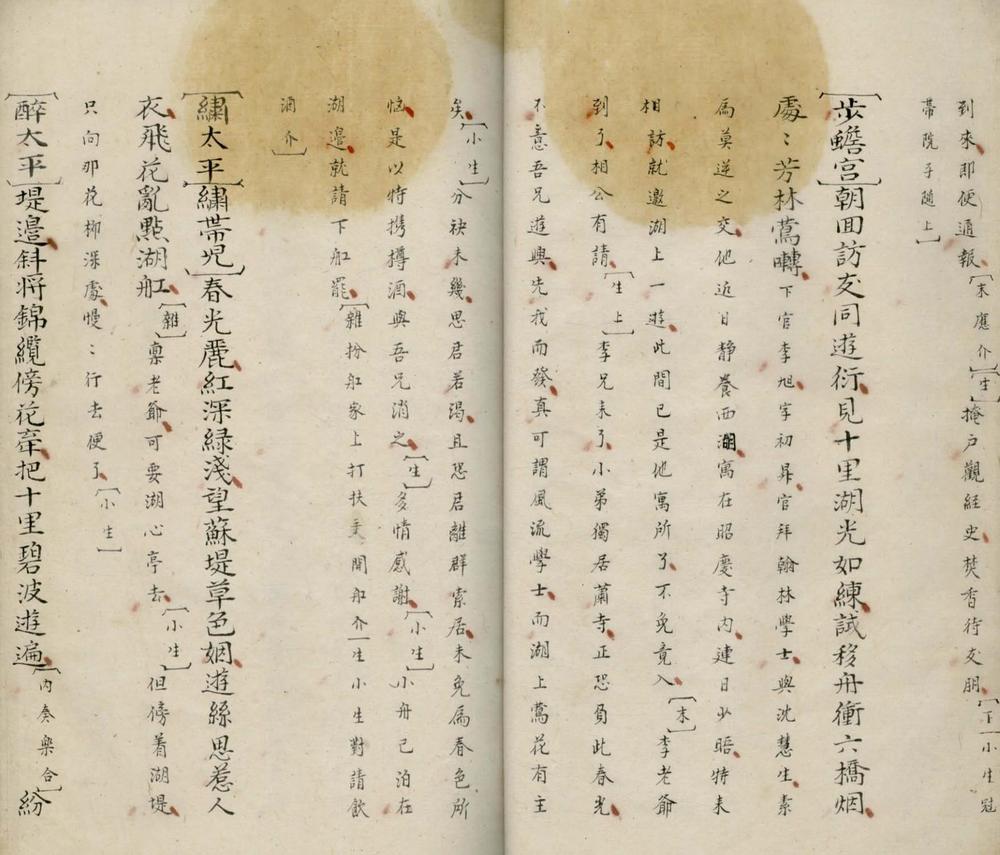 到來即便通報[末應介][生]掩戶觀經史焚香待友朋[下][小生冠
帶院子隨上]
[步蟾宮]朝回訪友同遊衍見十里湖光如練試移舟衝六橋烟
處〻芳林鶯囀下官李旭字初昇官拜翰林學士與沈慧生素
為莫逆之交他近日靜養西湖寓在昭慶寺內連日少晤特來
相訪就邀湖上一遊此間已是他寓所了不免竟入[末]李老爺
到了相公有請[生上]李兄來了小弟獨居蕭寺正恐負此春光
不意吾兄遊興先我而發真可謂風流學士而湖上鶯花有主
矣[小生]分袂未幾思君若渴且恐君離群索居未免為春色所
惱是以特携撙酒與吾兄消之[生]多情感謝[小生]小舟已泊在
湖邊就請下舡罷[雜扮舡家上打扶手開舡介][生小生對請飲
酒介]
[繡太平][繡帶児]春光麗紅深緑淺望蘇堤草色烟遊絲思惹人
衣飛花亂點湖舡[雜]禀老爺可要湖心亭去[小生]但傍着湖堤
只向那花柳深處慢〻行去便了[小生]
[醉太平]堤邉斜將錦纜傍花牽把十里碧波遊遍[內奏樂合]紛